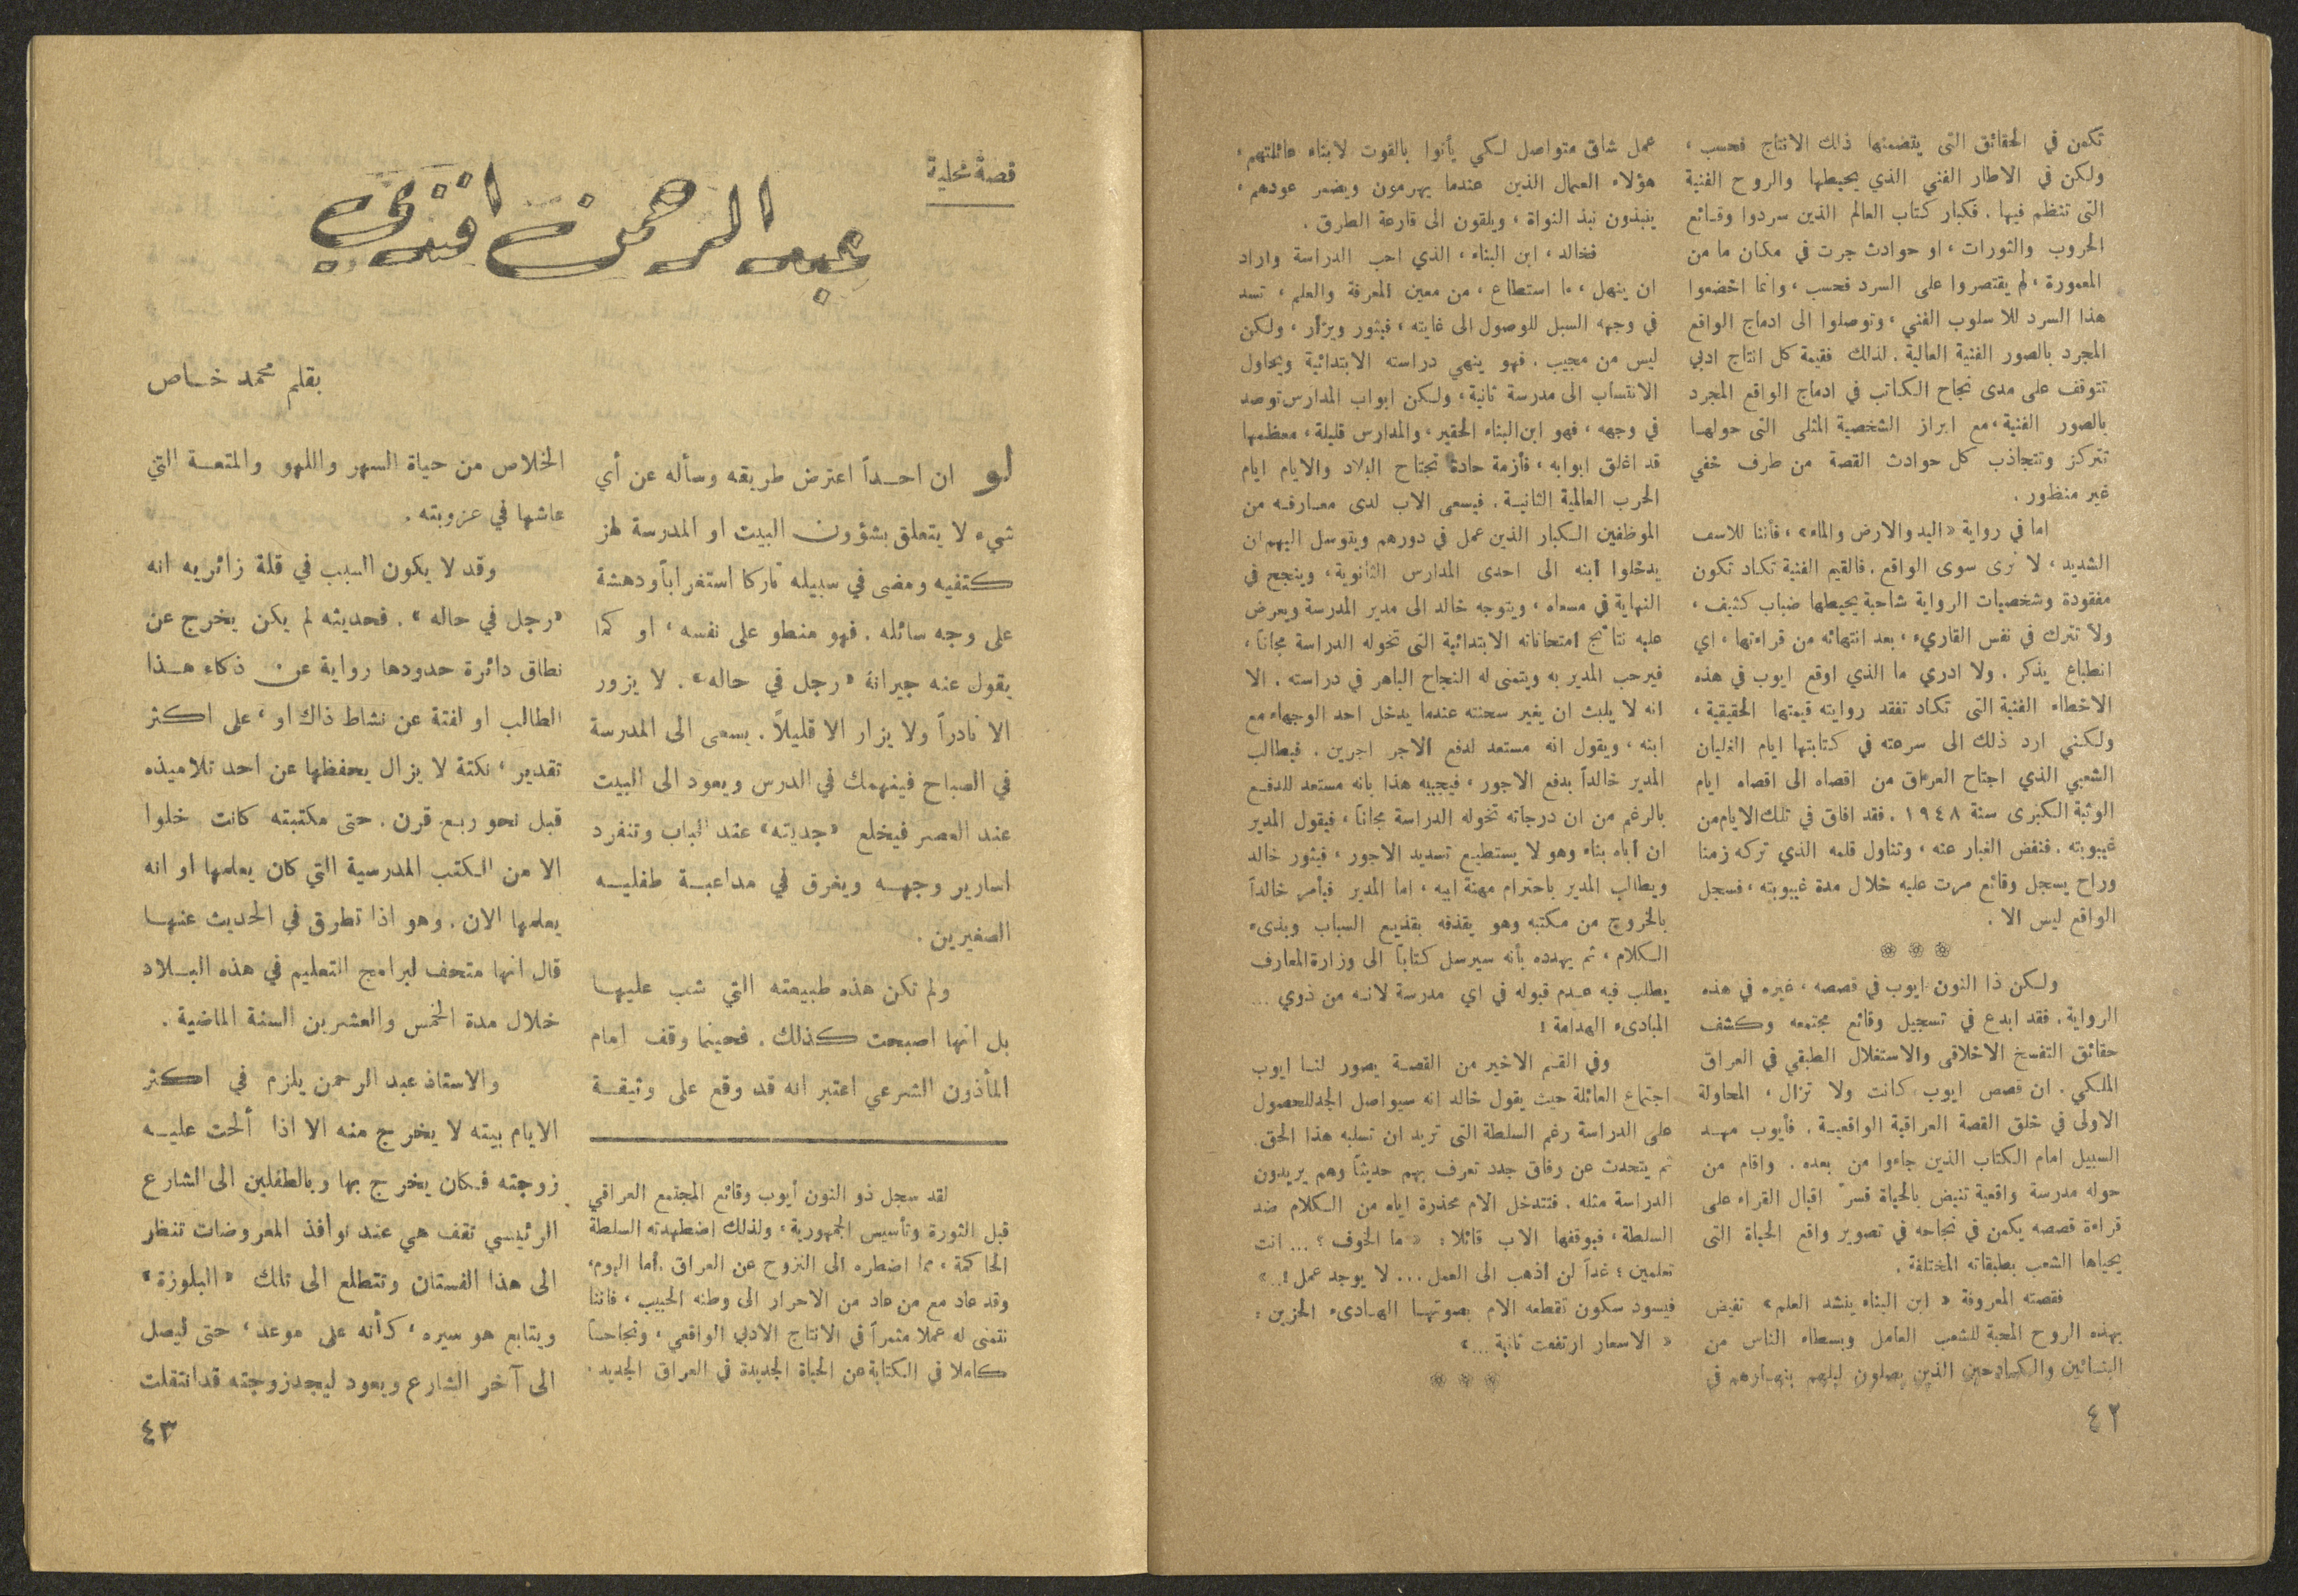 تكمن في الحقائق التى يتضمنها ذلك الانتاج فحسب ،
ولكن في الاطار الفني الذي يحيطها والروح الفنية
التى تنظم فيها . فكبار كتاب العالم الذين سردوا وقائع
الحروب والثورات ، او حوادث جرت في مكان ما من
المعمورة ، لم يقتصروا على السرد فحسب ، وانما اخضعوا
هذا السرد للاسلوب الفني ، وتوصلوا الى ادماج الواقع
المجرد بالصور الفنية العالية . لذلك فقيمة كل انتاج ادبي
تتوقف على مدى نجاح الكاتب في ادماج الواقع المجرد
بالصور الفنية ، مع ابراز الشخصية المثلى التى حولها
تتركز وتتجاذب كل حوادث القصة من طرف خفي
غير منظور .
اما في رواية «اليد والارض والماء» ، فأننا للاسف
الشديد ، لا نرى سوى الواقع . فالقيم الفنية تكاد تكون
مفقودة وشخصيات الرواية شاحبة يحيطها ضباب كثيف ،
ولا تترك في نفس القاريء ، بعد انتهائه من قراءتها ، اي
انطباع يذكر . ولا ادري ما الذي اوقع ايوب في هذه
الاخطاء الفنية التى تكاد تفقد روايته قيمتها الحقيقية ،
ولكني ارد ذلك الى سرعته في كتابتها ايام الغليان
الشعبي الذي اجتاح العراق من اقصاه الى اقصاه ايام
الوثبة الكبرى سنة ١٩٤٨ . فقد افاق في تلك الايام من
غيبوبته . فنفض الغبار عنه ، وتناول قلمه الذي تركه زمنا
وراح يسجل وقائع مرت عليه خلال مدة غيبوبته ، فسجل
الواقع ليس الا .
ولكن ذا النون ايوب في قصصه ، غيره في هذه
الرواية . فقد ابدع في تسجيل وقائع مجتمعه وكشف
حقائق التفسخ الاخلاقى والاستغلال الطبقي في العراق
الملكي . ان قصص ايوب كانت ولا تزال ، المحاولة
الاولى في خلق القصة العراقية الواقعية . فأيوب مهد
السبيل امام الكتاب الذين جاءوا من بعده . واقام من
حوله مدرسة واقعية تنبض بالحياة فسرّ اقبال القراء على
قراءة قصصه يكمن في نجاحه في تصوير واقع الحياة التى
يحياها الشعب بطبقاته المختلفة .
فقصته المعروفة « ابن البناء ينشد العلم » تفيض
بهذه الروح المحبة للشعب العامل وبسطاء الناس من
البنائين والكادحين الذين يصلون ليلهم بنهارهم في
٤٢
عمل شاق متواصل لكي يأتوا بالقوت لابناء عائلتهم ،
هؤلاء العمال الذين عندما يهرمون ويضمر عودهم ،
ينبذون نبذ النواة ، ويلقون الى قارعة الطرق .
فخالد ، ابن البناء ، الذي احب الدراسة واراد
ان ينهل ، ما استطاع ، من معين المعرفة والعلم ، تسد
في وجهه السبل للوصول الى غايته ، فيثور ويزأر ، ولكن
ليس من مجيب . فهو ينهي دراسته الابتدائية ويحاول
الانتساب الى مدرسة ثانية ، ولكن ابواب المدارس توصد
في وجهه ، فهو ابن البناء الحقير ، والمدارس قليلة ، معظمها
قد اغلق ابوابه ، فأزمة حادة تجتاح البلاد والايام ايام
الحرب العالمية الثانية . فيسعى الاب لدى معارفه من
الموظفين الكبار الذين عمل في دورهم ويتوسل اليهم ان
يدخلوا ابنه الى احدى المدارس الثانوية ، وينجح في
النهاية في مسعاه ، ويتوجه خالد الى مدير المدرسة ويعرض
عليه نتائج امتحاناته الابتدائية التى تخوله الدراسة مجاناً ،
فيرحب المدير به ويتمنى له النجاح الباهر في دراسته . الا
انه لا يلبث ان يغير سحنته عندما يدخل احد الوجهاء مع
ابنه ، ويقول انه مستعد لدفع الاجر اجرين . فيطالب
المدير خالداً بدفع الاجور ، فيجيبه هذا بانه مستعد للدفع
بالرغم من ان درجاته تخوله الدراسة مجاناً ، فيقول المدير
ان أباه بناء وهو لا يستطيع تسديد الاجور ، فيثور خالد
ويطالب المدير باحترام مهنة ابيه ، اما المدير فيأمر خالداً
بالخروج من مكتبه وهو يقذفه بقذيع السباب وبذىء
الكلام ، ثم يهدده بأنه سيرسل كتاباً الى وزارة المعارف
يطلب فيه عدم قبوله في اي مدرسة لانه من ذوي ...
المبادىء الهدامة !
وفي القسم الاخير من القصة يصور لنا ايوب
اجتماع العائلة حيث يقول خالد انه سيواصل الجد للحصول
على الدراسة رغم السلطة التى تريد ان تسلبه هذا الحق .
ثم يتحدث عن رفاق جدد تعرف بهم حديثاً وهم يريدون
الدراسة مثله . فتتدخل الام محذرة اياه من الكلام ضد
السلطة ، فيوقفها الاب قائلا : « ما الخوف ؟ ... انت
تعلمين ؛ غداً لن أذهب الى العمل ... لا يوجد عمل ! .. »
فيسود سكون تقطعه الام بصوتها الهادىء الحزين :
« الاسعار ارتفعت ثانية ... »
قصة محلية
عبد الرحمن افندي
بقلم محمد خاص
لو ان احداً اعترض طريقه وسأله عن أي
شيء لا يتعلق بشؤون البيت او المدرسة لهز
كتفيه ومضى في سبيله تاركا استغراباً ودهشة
على وجه سائله . فهو منطو على نفسه ، او كما
يقول عنه جيرانه «رجل في حاله» . لا يزور
الا نادراً ولا يزار الا قليلاً . يسعى الى المدرسة
في الصباح فينهمك في الدرس ويعود الى البيت
عند العصر فيخلع «جديته» عند الباب وتنفرد
اسارير وجهه ويغرق في مداعبة طفليه
الصغيرين .
ولم تكن هذه طبيعته التي شب عليها
بل انها اصبحت كذلك . فحينما وقف امام
المأذون الشرعي اعتبر انه قد وقع على وثيقة
لقد سجل ذو النون أيوب وقائع المجتمع العراقي
قبل الثورة وتأسيس الجمهورية ، ولذلك اضطهدته السلطة
الحاكمة ، مما اضطره الى النزوح عن العراق . أما اليوم ،
وقد عاد مع من عاد من الاحرار الى وطنه الحبيب ، فاننا
نتمنى له عملا مثمراً في الانتاج الادبي الواقعي ، ونجاحاً
كاملا في الكتابة عن الحياة الجديدة في العراق الجديد .
الخلاص من حياة السهر واللهو والمتعة التي
عاشها في عزوبته .
وقد لا يكون السبب في قلة زائريه انه
«رجل في حاله» . فحديثه لم يكن يخرج عن
نطاق دائرة حدودها رواية عن ذكاء هذا
الطالب او لفتة عن نشاط ذاك او ، على اكثر
تقدير ، نكتة لا يزال يحفظها عن احد تلاميذه
قبل نحو ربع قرن . حتى مكتبته كانت خلوا
الا من الكتب المدرسية التي كان يعلمها او انه
يعلمها الان . وهو اذا تطرق في الحديث عنها
قال انها متحف لبرامج التعليم في هذه البلاد
خلال مدة الخمس والعشرين السنة الماضية .
والاستاذ عبد الرحمن يلزم في اكثر
الايام بيته لا يخرج منه الا اذا ألحت عليه
زوجته فكان يخرج بها وبالطفلين الى الشارع
الرئيسي تقف هي عند نوافذ المعروضات تنظر
الى هذا الفستان وتتطلع الى تلك «البلوزة»
ويتابع هو سيره ، كأنه على موعد ، حتى ليصل
الى آخر الشارع ويعود ليجد زوجته قد انتقلت
٤٣